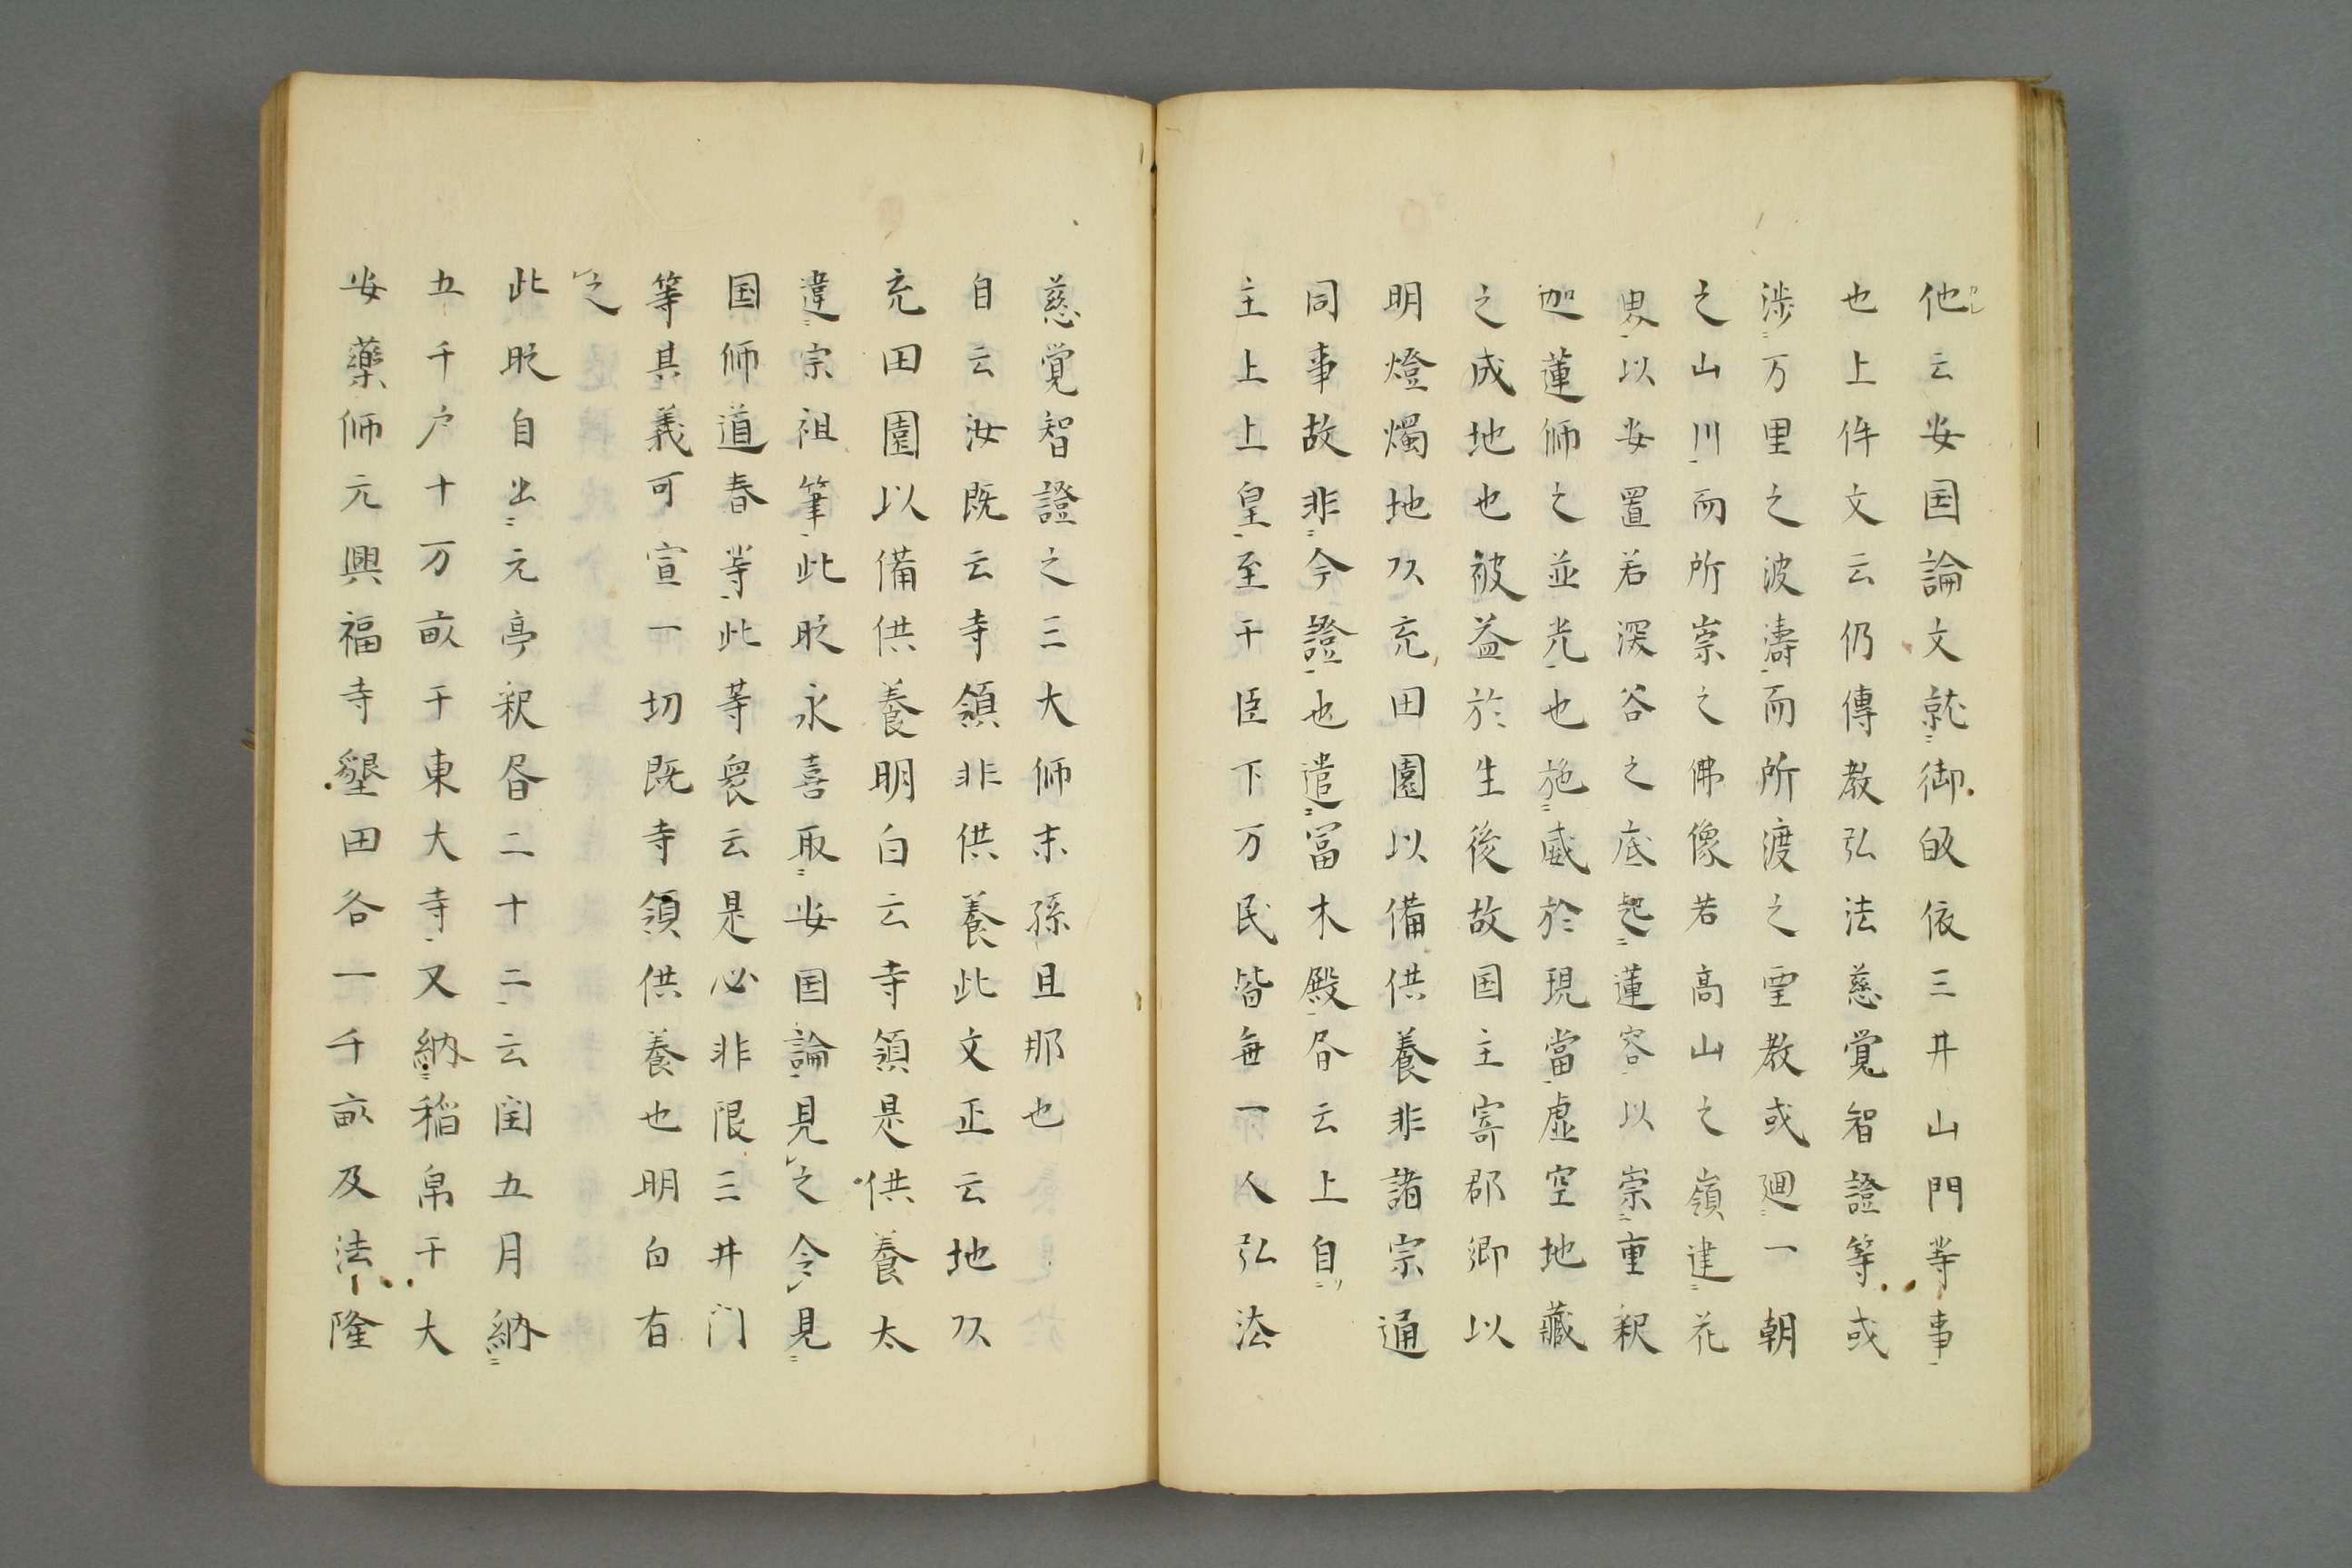 他云安国論文就御皈依三井山門等事
也上件文云仍傳教弘法慈覚智證等或
渉万里之波濤而所渡之聖教或廻一朝
之山川而所崇之佛像若高山之嶺建花
界以安置若深谷之底起蓮容以崇重釈
迦蓮师之並光也施威於現當虚空地藏
之成地也被益於生後故国主寄郡郷以
明燈燭地双充田園以備供養非諸宗通
同事故非今證也遣冨木殿昏云上自
主上上皇至于臣下万民皆無一人弘法
慈覚智證之三大师末孫且那也
自云汝既云寺領非供養此文正云地双
充田園以備供養明白云寺領是供養太
違宗祖筆此昄永喜取安国論見之令見
国师道春等此等衆云是必非限三井门
等其義可宣一切既寺領供養也明白有
之
此昄自出元亭釈昏二十二云閏五月納
五千户十万畝于東大寺又納稲帛于大
安藥师元興福寺墾田各一千畝及法隆